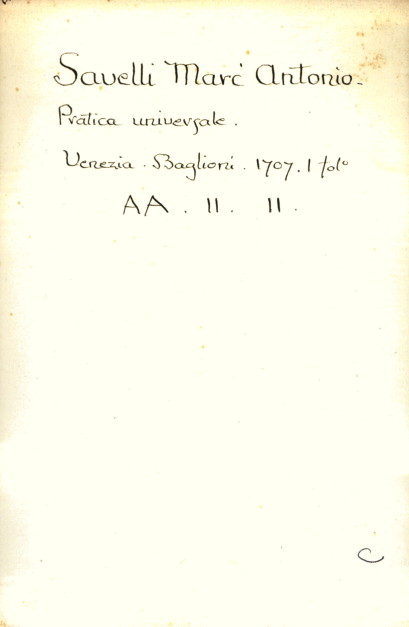 Savelli Marc' Antonio.
Pratica universale.
Venezia. Baglioni. 1707. 1 fol°
AA. II. II.
C